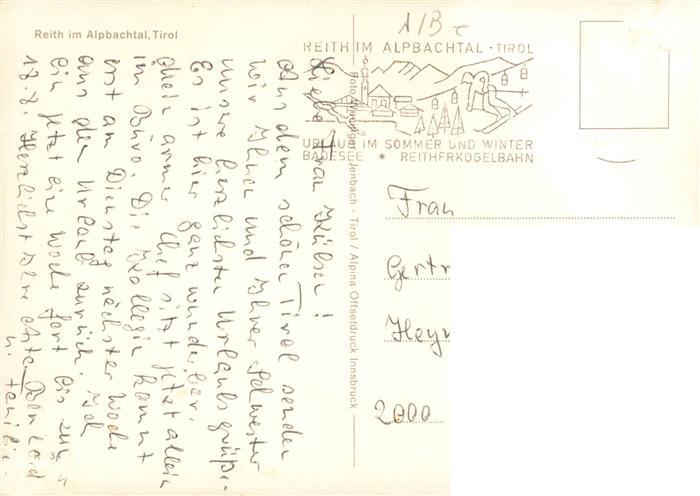 Reith im Alpbachtal, Tirol
A/B
REITH IM ALPBACHTAL · TIROL
URLAUB IM SOMMER UND WINTER
BADESEE * REITHERKOGELBAHN
Liebe Frau
Aus dem schönen Tirol senden
wir Ihnen und Ihrer Schwester
unsere herzlichsten Urlaubsgrüße.
Es ist hier ganz wunderbar.
Mein armer Chef sitzt jetzt allein
im Büro. Die Kollegin kommt
erst am Dienstag nächster Woche
aus dem Urlaub zurück. Ich
bin jetzt eine Woche fort bis zum
18.8. Herzlichst Ihre
u. Familie.
Foto Jenbach - Tirol / Alpina Offsetdruck Innsbruck
Frau
Gertr
Hey
2000